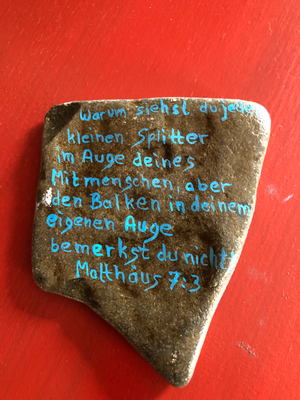 Warum siehst du jeden
kleinen Splitter
im Auge deines
Mitmenschen, aber
den Balken in deinem
eigenen Auge
bemerkst du nicht?
Matthäus 7:3